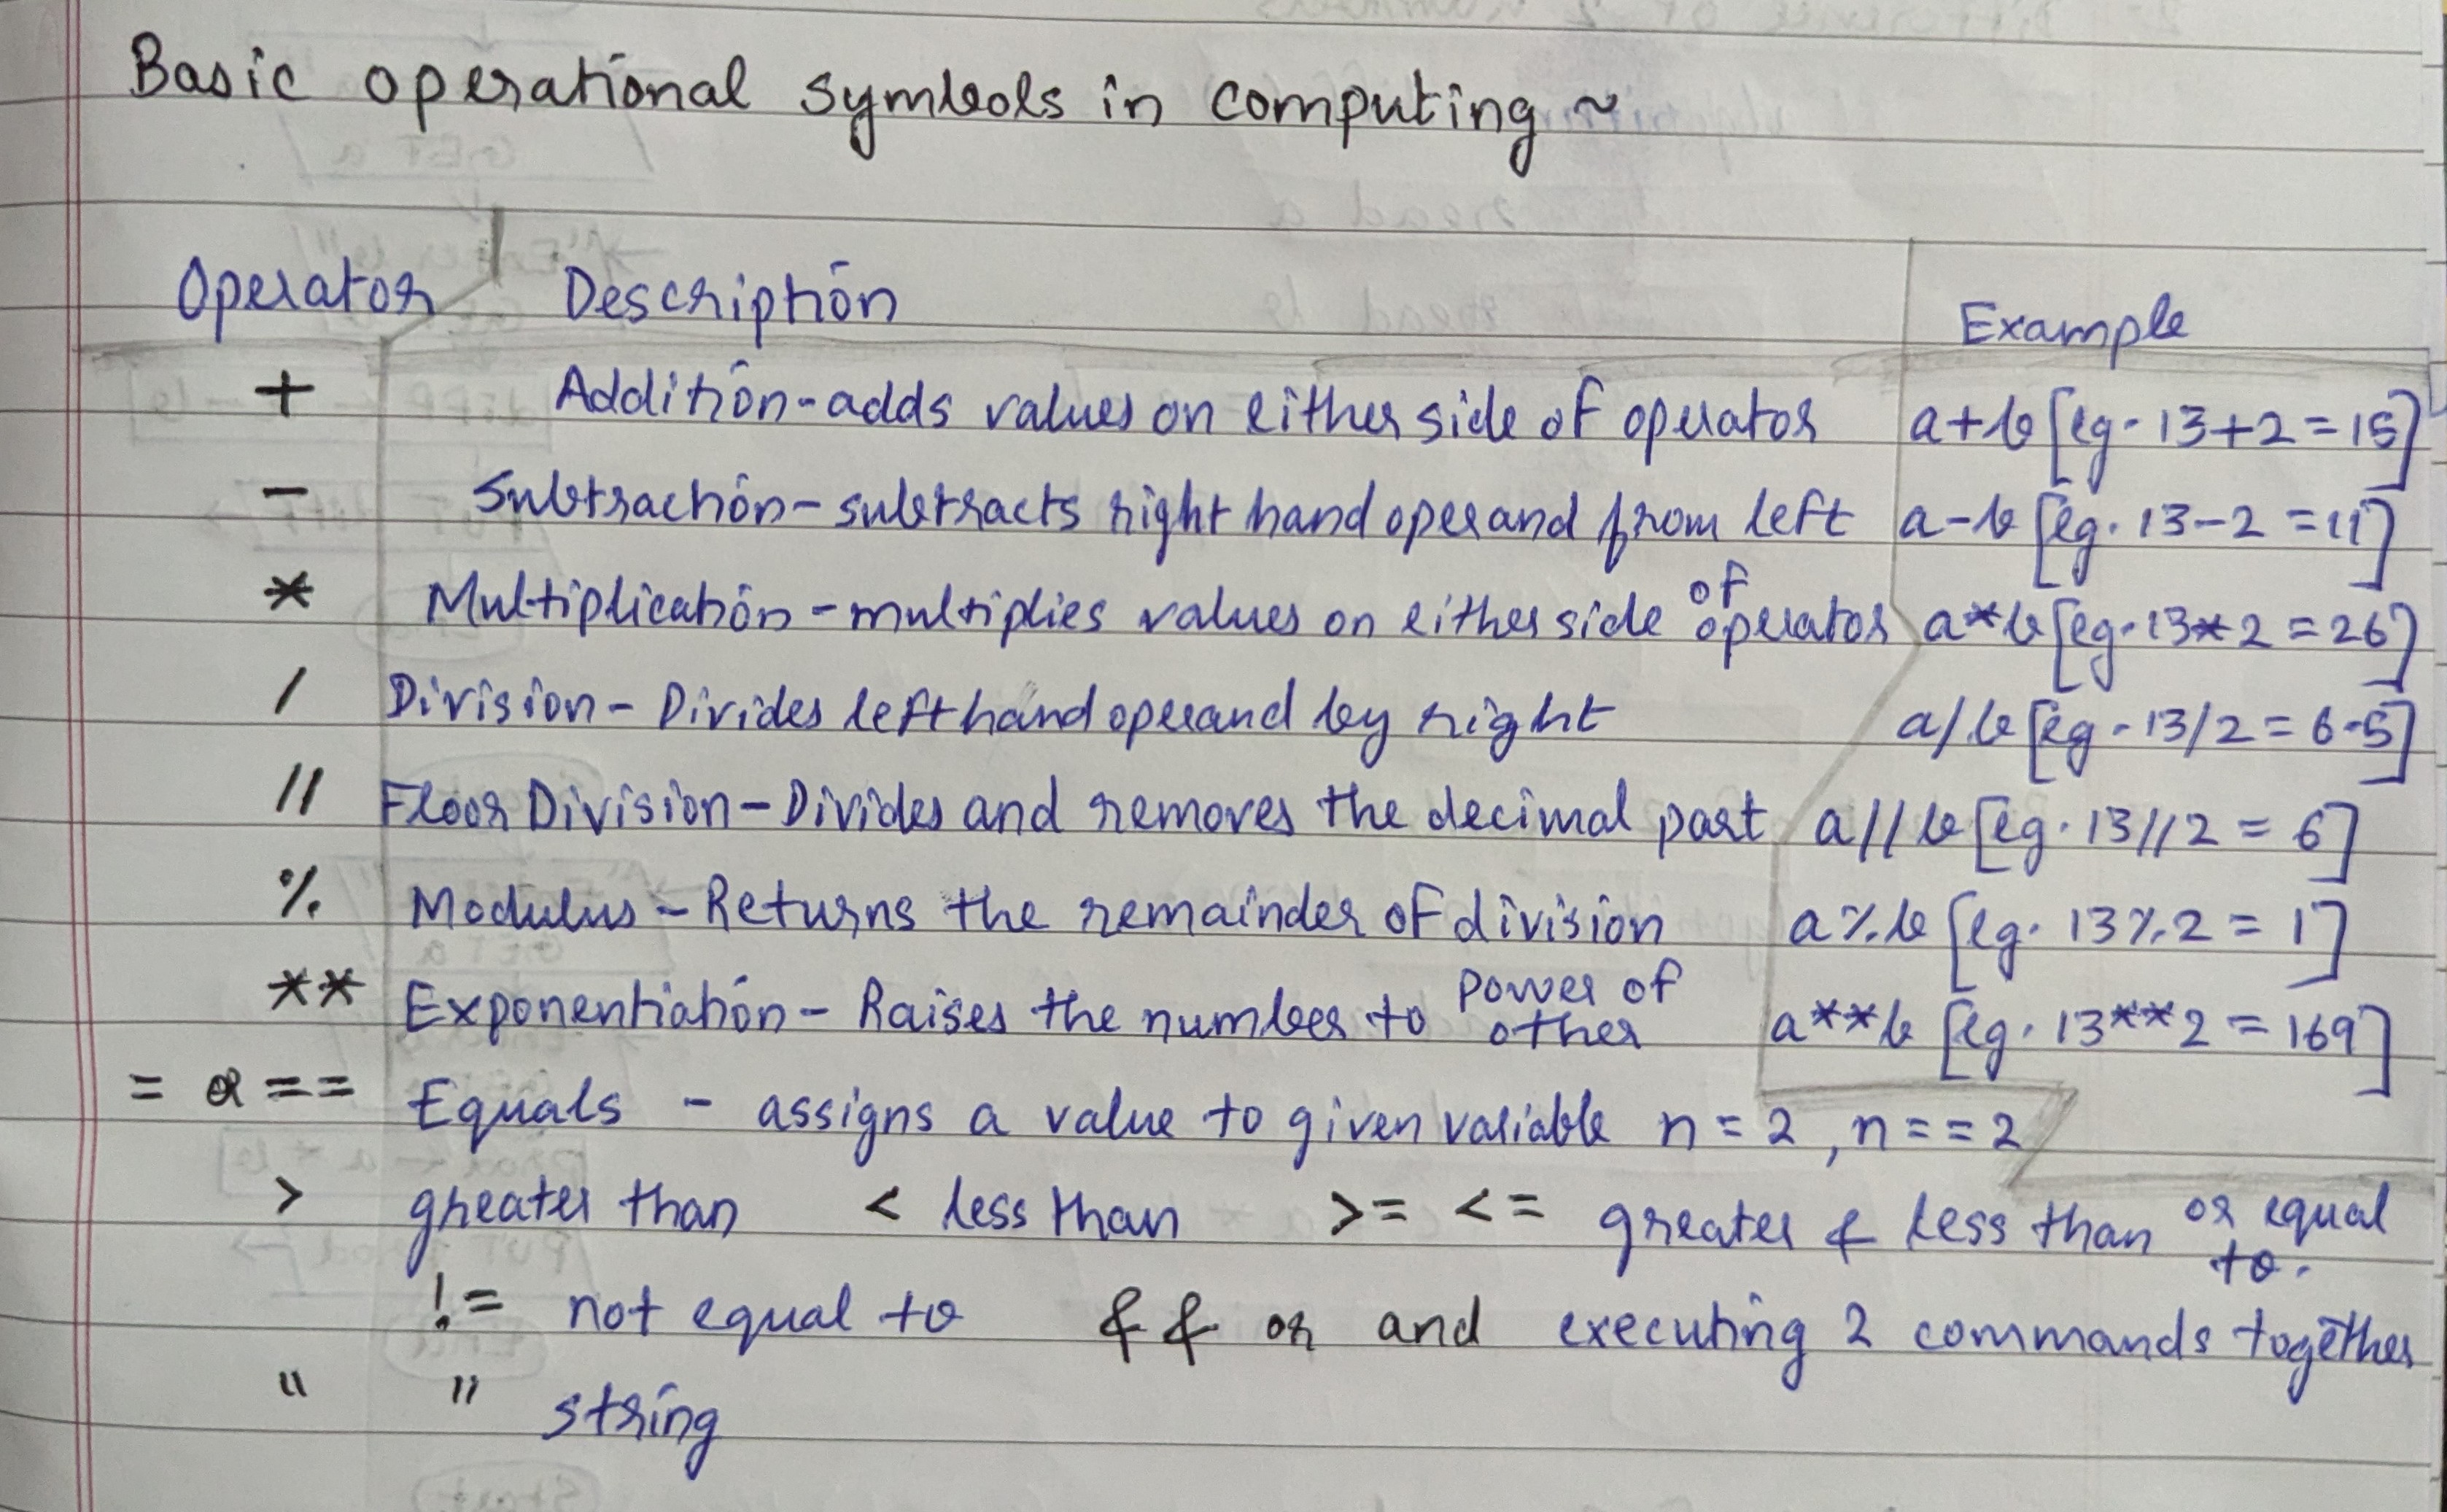 Basic operational symbols in computing ~
Operator Description Example
+ Addition - adds values on either side of operator a+b [eg. 13+2=15]
- Subtraction - subtracts right hand operand from left a-b [eg. 13-2=11]
* Multiplication - multiplies values on either side of operator a*b [eg. 13*2=26]
/ Division - Divides left hand operand by right a/b [eg. 13/2=6.5]
// Floor Division - Divides and removes the decimal part a//b [eg. 13//2=6]
% Modulus - Returns the remainder of division a%b [eg. 13%2=1]
** Exponentiation - Raises the number to power of other a**b [eg. 13**2=169]
= or == Equals - assigns a value to given variable n=2, n==2
> greater than < less than >= <= greater & less than or equal to.
!= not equal to && or and executing 2 commands together
" " string